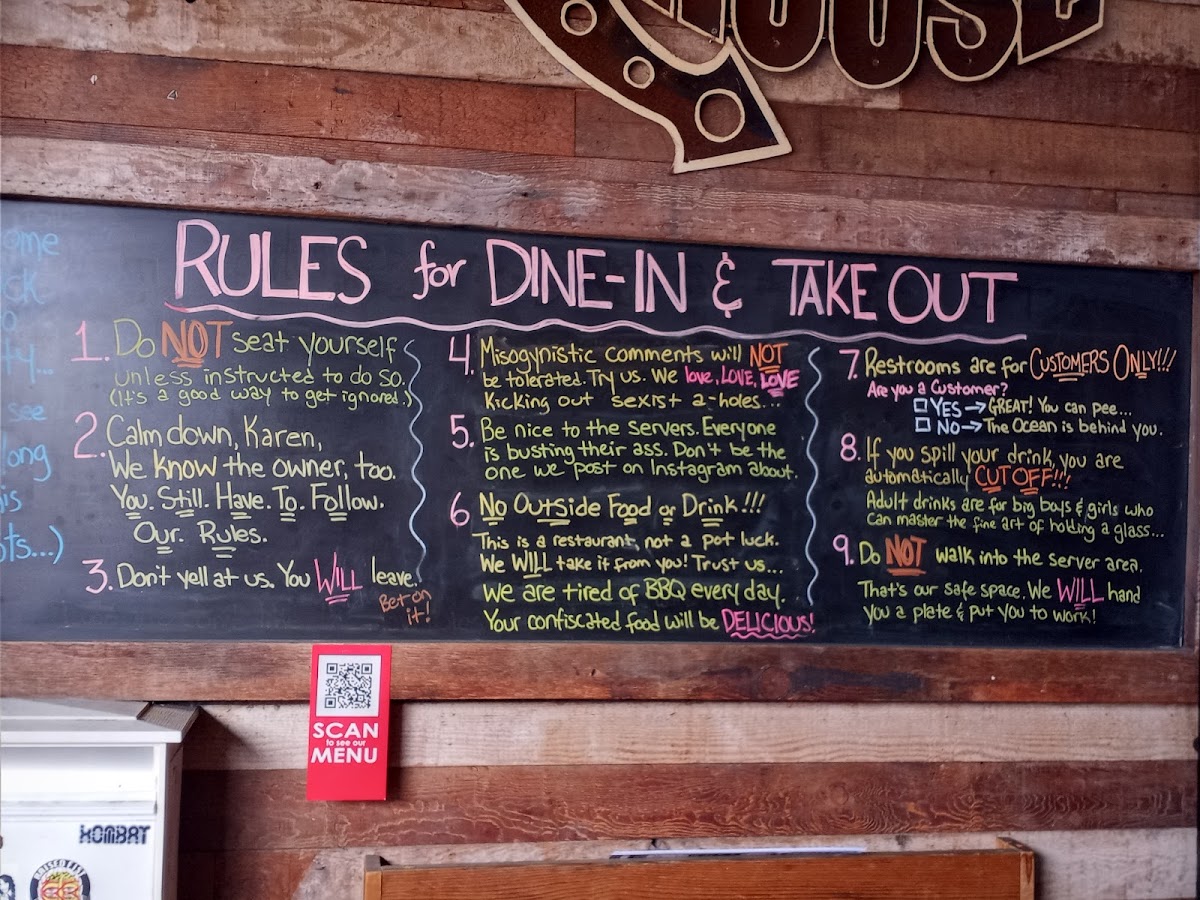 HOUSE
RULES for DINE-IN & TAKE OUT
1. Do NOT seat yourself
unless instructed to do so.
(It's a good way to get ignored.)
2. Calm down, Karen,
We know the owner, too.
You. Still. Have. To. Follow.
Our. Rules.
3. Don't yell at us. You WILL leave.
Bet on
it!
4. Misogynistic comments will NOT
be tolerated. Try us. We love, LOVE, LOVE
Kicking out sexist a-holes...
5. Be nice to the servers. Everyone
is busting their ass. Don't be the
one we post on Instagram about.
6 No Outside Food or Drink!!!
This is a restaurant, not a pot luck.
We WILL take it from you! Trust us...
we are tired of BBQ every day.
Your confiscated food will be DELICIOUS!
7. Restrooms are for CUSTOMERS ONLY!!!
Are you a Customer?
YES → GREAT! You can pee...
NO → The Ocean is behind you.
8. If you spill your drink, you are
automatically CUT OFF!!!
Adult drinks are for big boys & girls who
can master the fine art of holding a glass...
9. Do NOT walk into the server area.
That's our safe space. We WILL hand
you a plate & put you to work!
ome
ck
o
ty...
see
long
is
ots...)
SCAN
to see our
MENU
KOMBAT
RAISED FIST